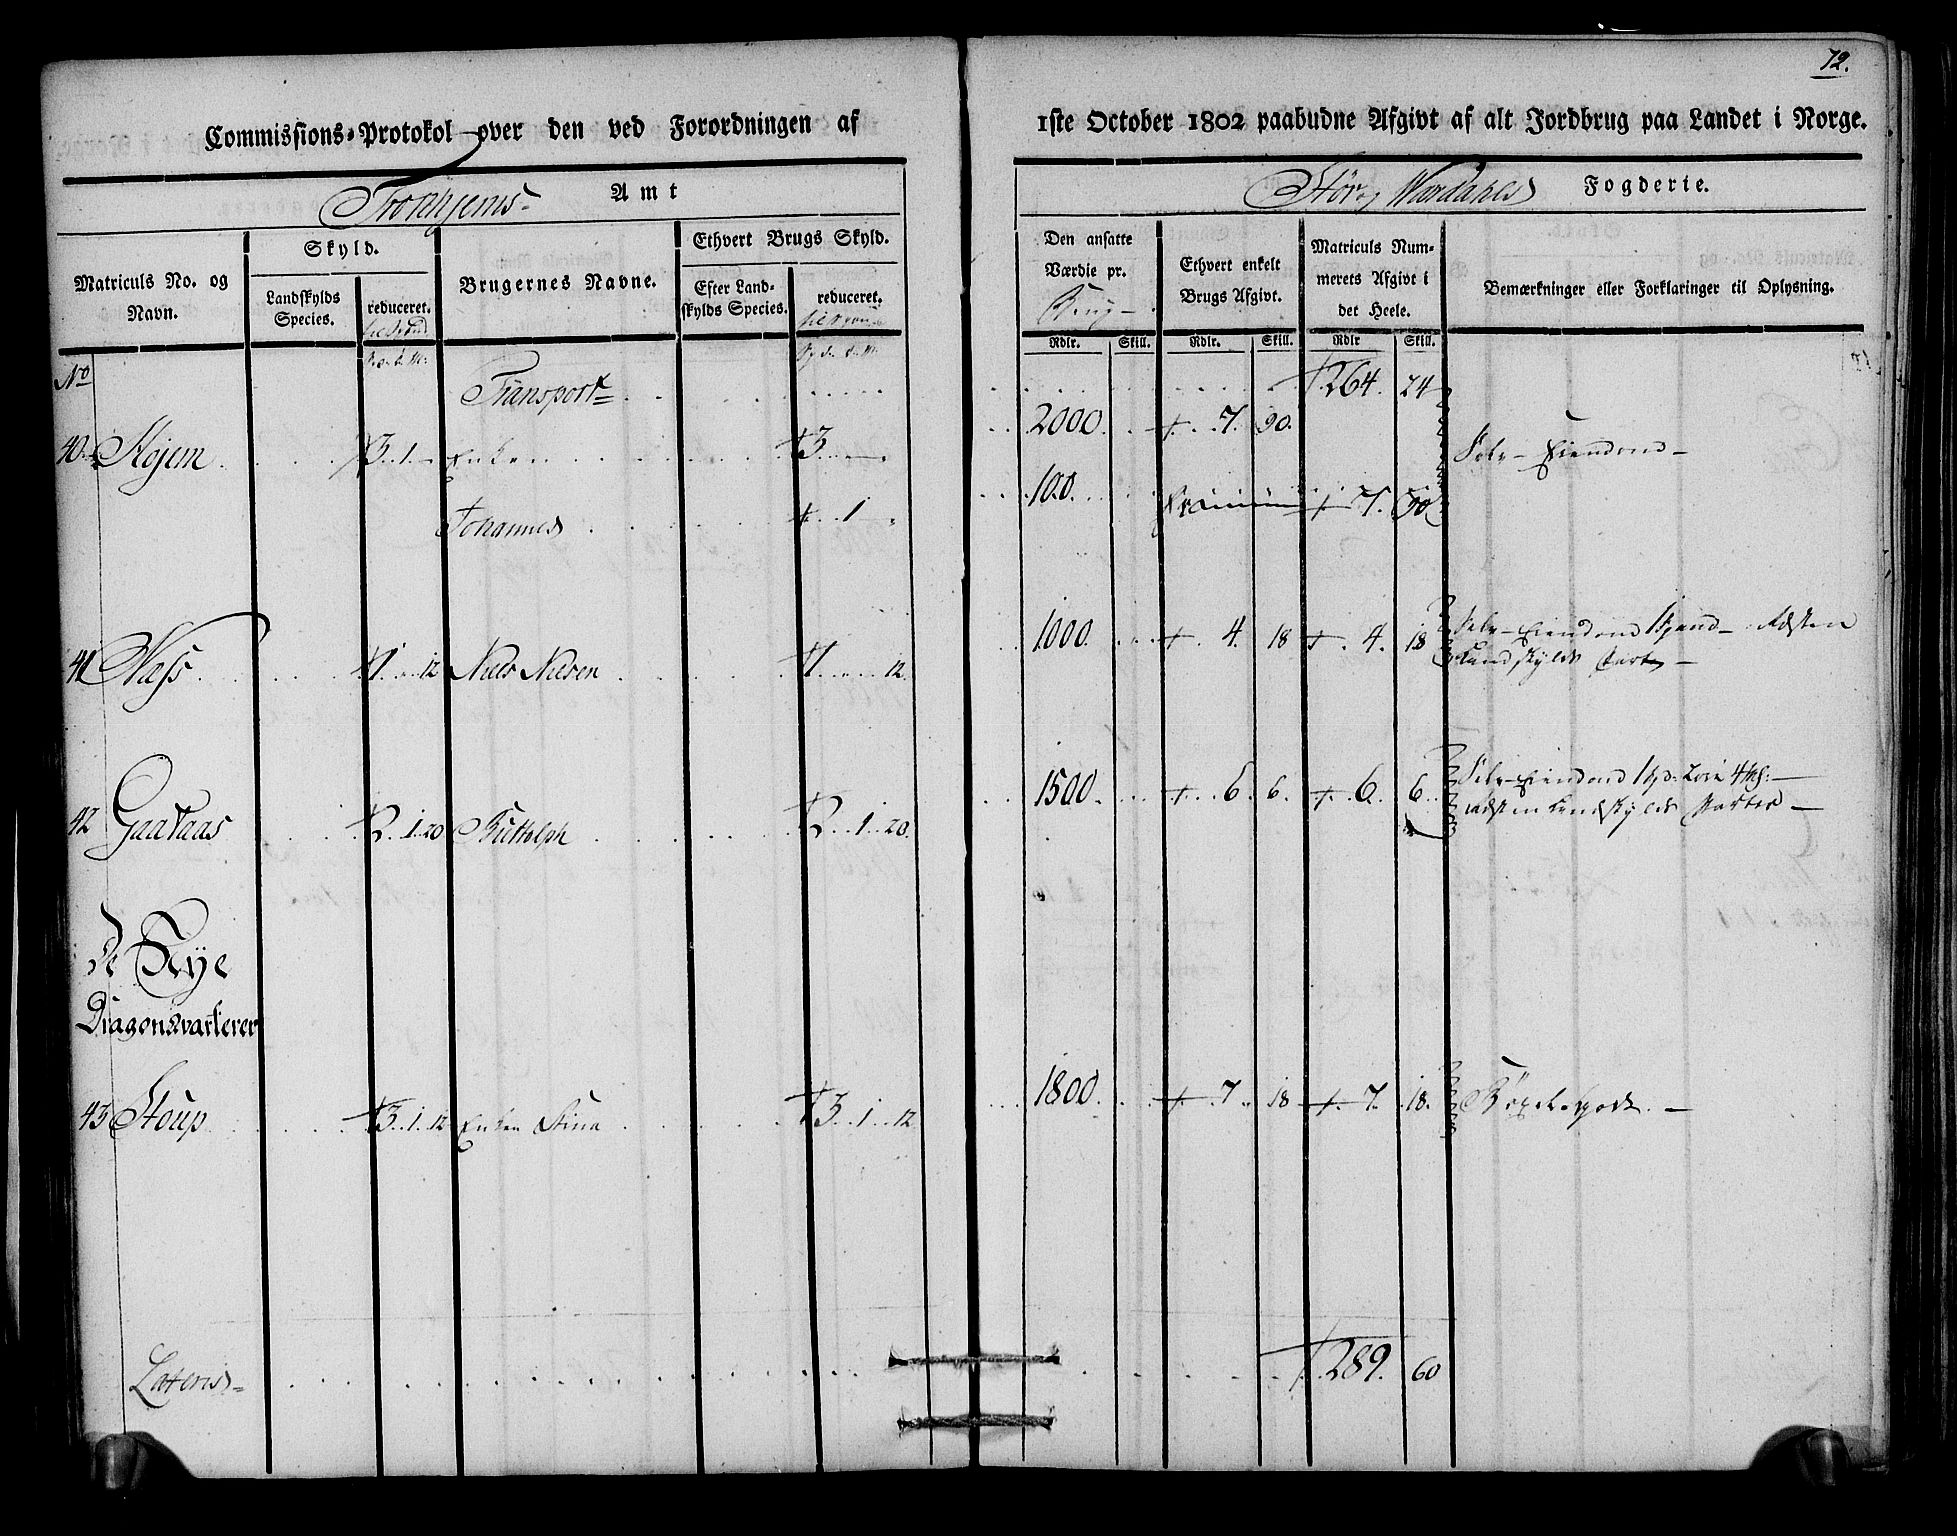 72.
Commissions-Protokol over den ved Forordningen af 1ste October 1802 paabudne Afgivt af alt Jordbrug paa Landet i Norge.
Tronhjems Amt
Stör og Værdahls Fogderie.
Matriculs No. og Navn.
Skyld.
Landskylds Species.
reduceret.
Brugernes Navne.
Ethvert Brugs Skyld.
Efter Landskylds Species.
reduceret.
Den ansatte Værdie pr. Brug
Ethvert enkelt Brugs Afgivt.
Matriculs Nummerets Afgivt i det Heele.
Bemærkninger eller Forklaringer til Oplysning.
Rdlr. Skill. Rdlr. Skill. Rdlr Skill.
No
Transport 264. 24
40 Hojem 3. 1 Enken 3 2000 7. 90. Selv-Eiendond
Johannes 1 100 7. 90
41 Næss 1 12 Niels Nilsen 1 12. 1000. 4. 18 4. 18 Selv-Eiendond Bynd-
Landskylds Parter
42 Gaaraas 2. 1. 20 Buttolph 2. 1. 20. 1500. 6 6. 6. 6. Selv-Eiendond
Landskylds Parter
De Frye
Dragonqvarterer
43 Stoup 3. 1. 12 Enken Stina 3. 1. 12 1800. 7. 18 7. 18.
Lateris 289. 60